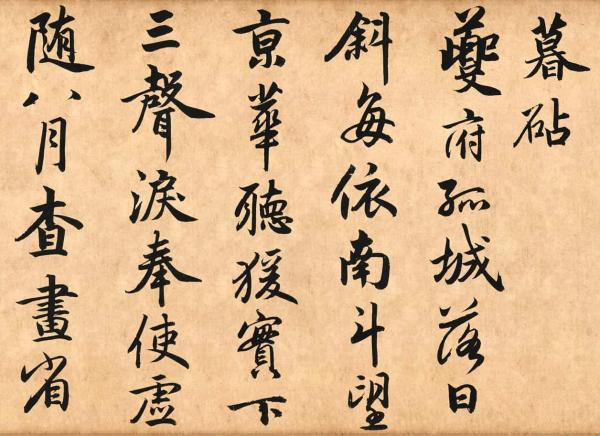 暮砧
夔府孤城落日
斜每依南斗望
京華聽猨實下
三聲淚奉使虛
随八月查畫省